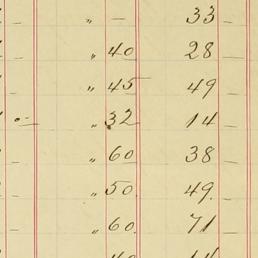 " — 33 —
" 40 28 —
" 45 49 —
" 32 14 —
" 60 38 —
" 50. 49. —
" 60. 71 —